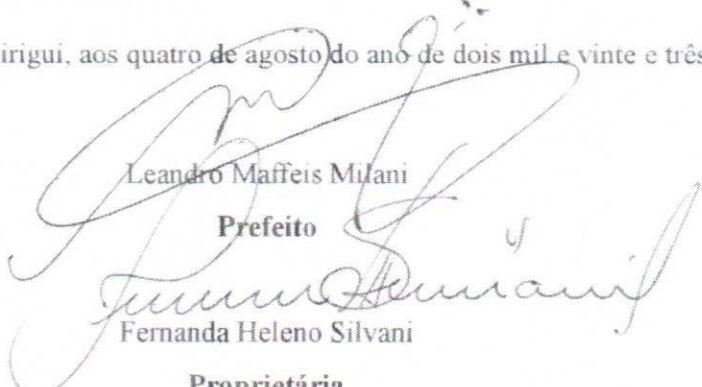 irigui, aos quatro de agosto do ano de dois mil e vinte e três
Leandro Maffeis Milani
Prefeito
Fernanda Heleno Silvani
Proprietária